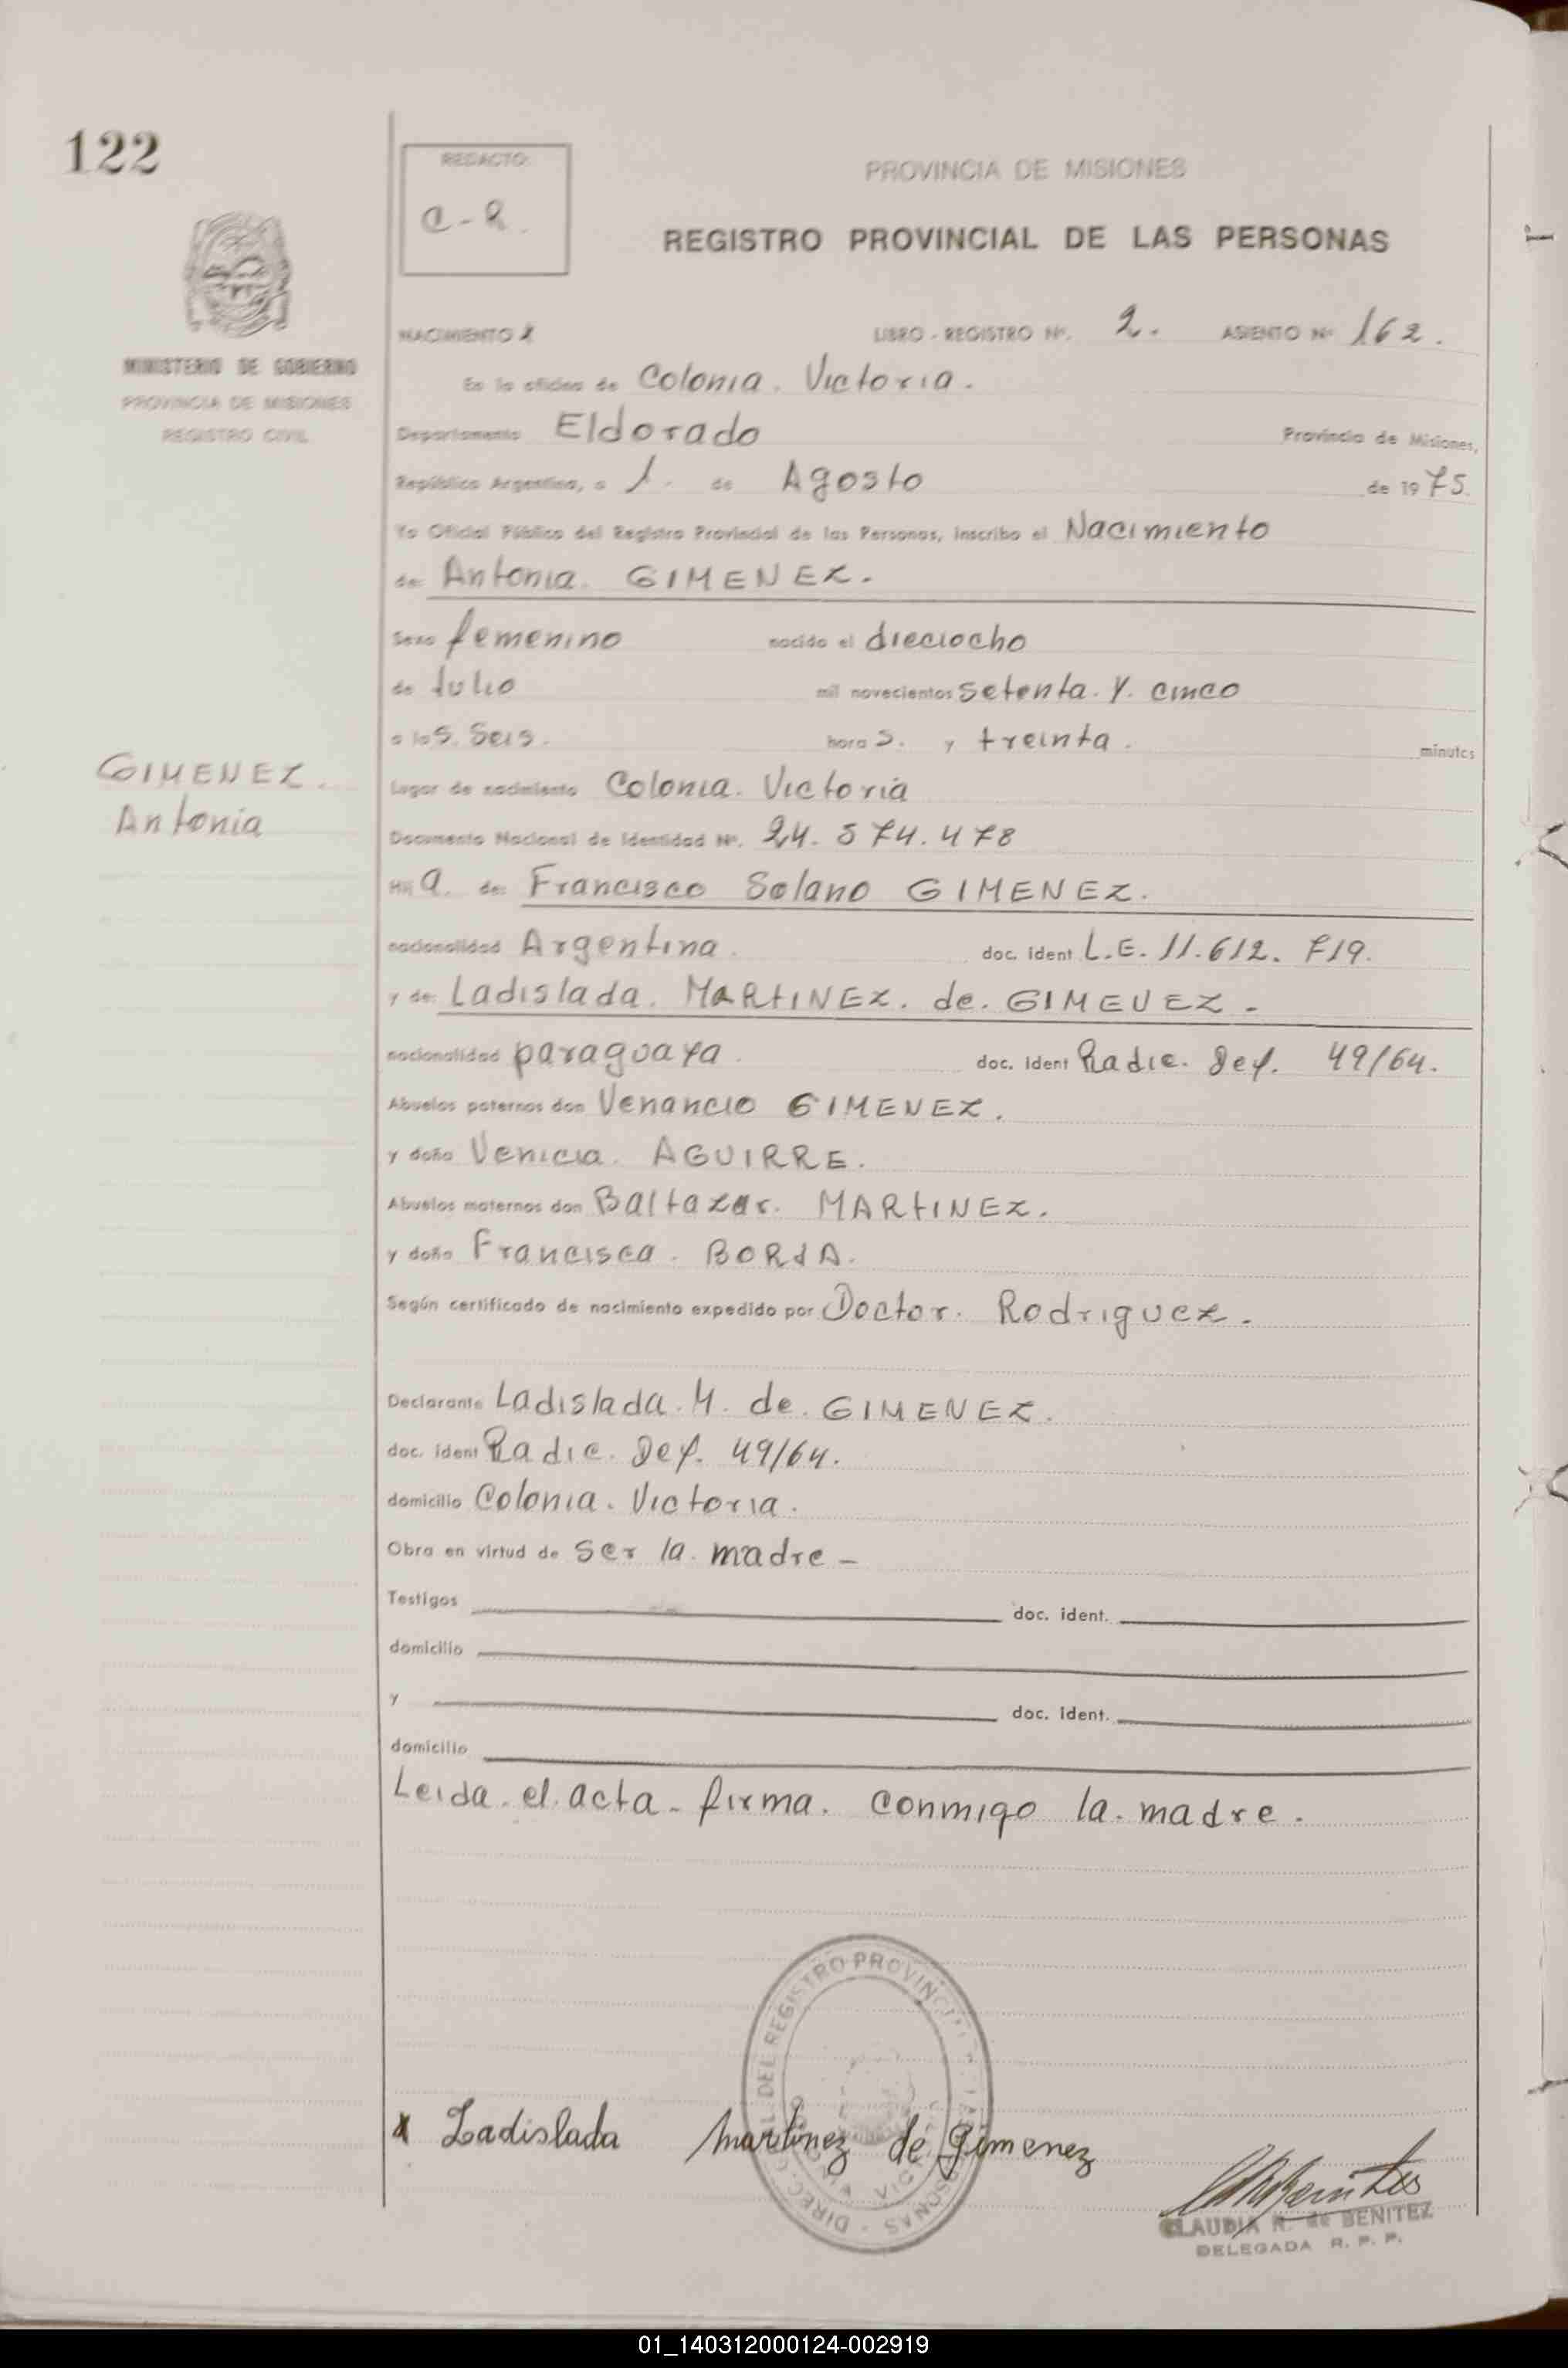 122
REDACTO:
C-R.
PROVINCIA DE MISIONES
REGISTRO PROVINCIAL DE LAS PERSONAS
MINISTERIO DE GOBIERNO
PROVINCIA DE MISIONES
REGISTRO CIVIL
NACIMIENTO X LIBRO - REGISTRO Nº. 2. ASIENTO Nº 162.
En la oficina de Colonia. Victoria.
Departamento Eldorado Provincia de Misiones,
República Argentina, a 1. de Agosto de 1975.
Yo Oficial Público del Registro Provincial de las Personas, inscribo el Nacimiento
de: Antonia. GIMENEZ.
Sexo femenino nacido el dieciocho
de Julio mil novecientos setenta. y. cinco
a las. Seis. horas. y treinta. minutos
GIMENEZ.
Antonia
Lugar de nacimiento Colonia. Victoria
Documento Nacional de Identidad Nº. 24.574.478
Hija. de: Francisco Solano GIMENEZ.
nacionalidad Argentina. doc. ident L.E. 11.612.719.
y de: Ladislada. MARTINEZ. de. GIMEUEZ -
nacionalidad paraguaya. doc. ident Radic. Def. 49/64.
Abuelos paternos don Venancio GIMENEZ.
y doña Venicia. AGUIRRE.
Abuelos maternos don Baltazar. MARTINEZ.
y doña Francisca. BORJA.
Según certificado de nacimiento expedido por Doctor. Rodriguez.
Declarante Ladislada. M. de. GIMENEZ.
doc. ident Radic. Def. 49/64.
domicilio Colonia. Victoria.
Obra en virtud de Ser la. madre -
Testigos doc. ident.
domicilio
y doc. ident.
domicilio
Leida. el. acta - firma. conmigo la. madre.
DIREC. GRAL. DEL REGISTRO PROVINCIAL DE LAS PERSONAS
x Ladislada Martinez de Gimenez
CLAUDIA R. de BENITEZ
DELEGADA R. P. P.
01_140312000124-002919